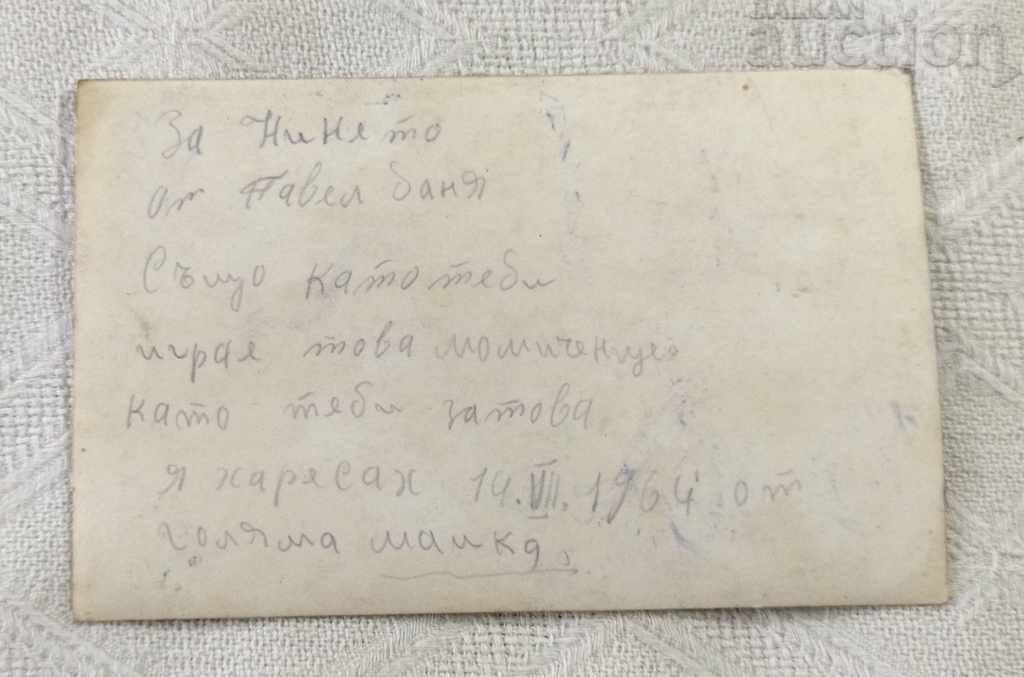 BALKAN
auction
За Нинето
от Павел баня
Също като теби
играе това момиченце
като теби затова
я харесах 14.VII.1964 от
голяма майка